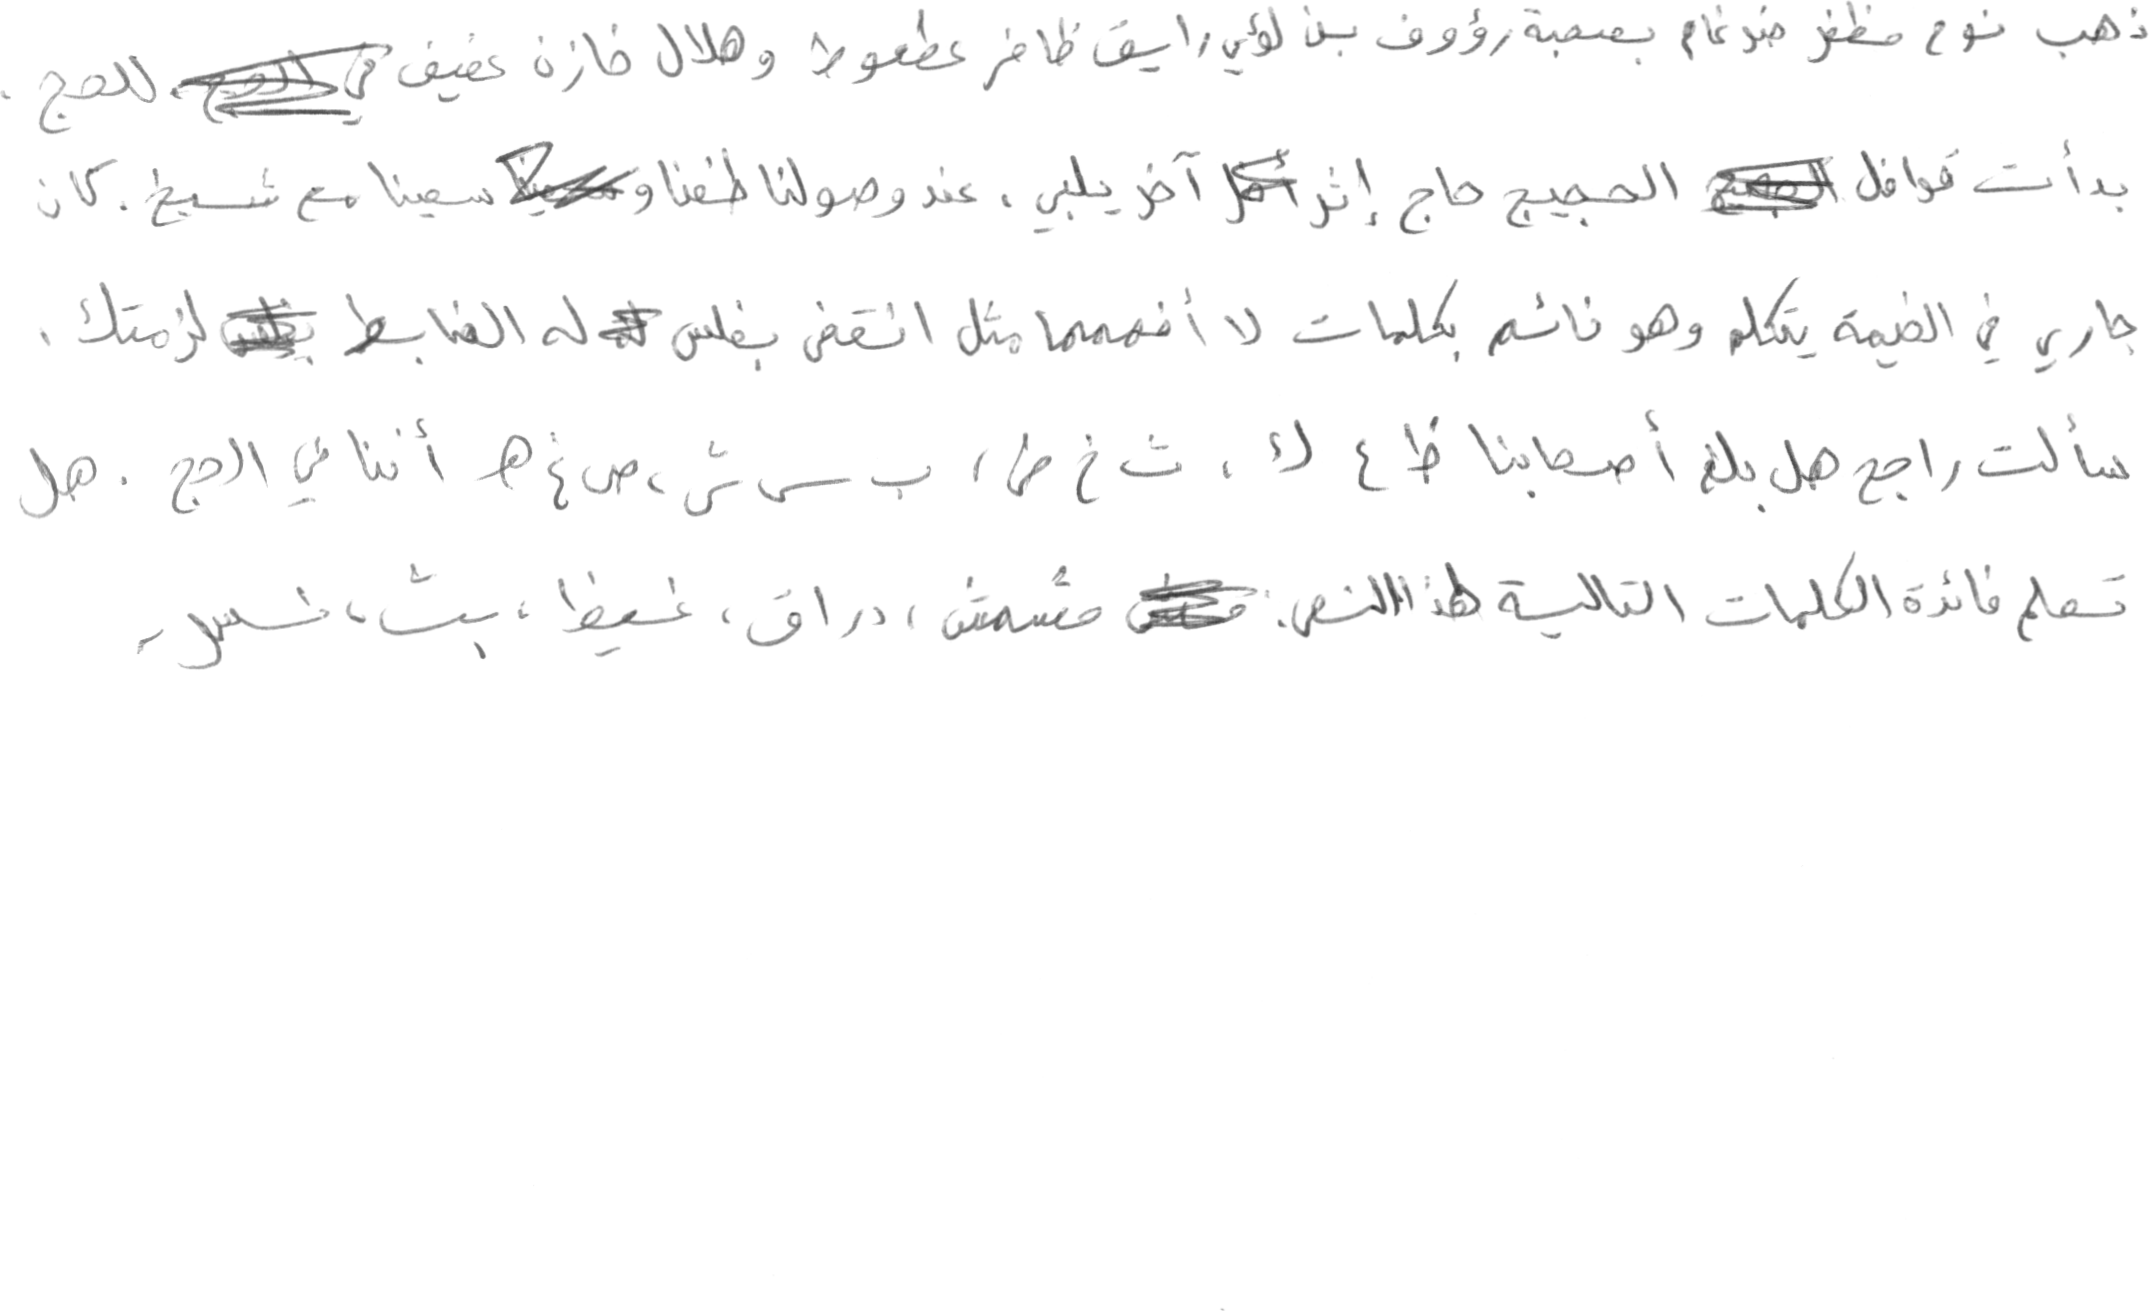 ذهب نوح مظفر ضرغام بصحبة رؤوف بن لؤي رايق ظافر عطعوط وهلال خازن عفيف للحج .
بدأت قوافل الحجيج حاج إثر آخر يلبي . عند وصولنا طفنا و سعينا مع شيخ . كان
جاري في الخيمة يتكلم وهو نائم بكلمات لا أفهمها مثل انقض بغلس له الضابط لزمتك .
سألت راجح هل بلغ أصحابنا ظ ع ك ، ث خ ض ، ب س ش ، ص غ ه أننا في الحج . هل
تعلم فائدة الكلمات التالية لهذا النص : مشمش ، دراق ، غيظ ، بث ،